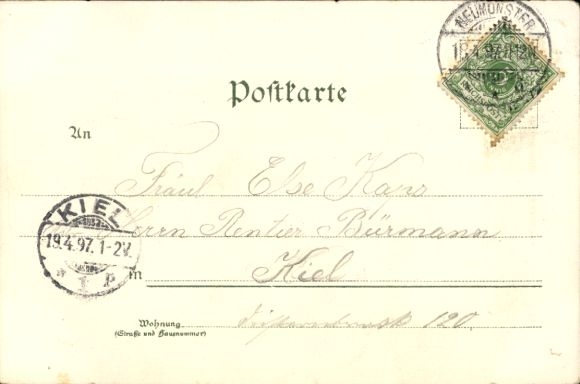 NEUMÜNSTER
19.4.97. 11-12V.
Postkarte
An
Fräul Else Kaps
Herrn Rentier Bürmann
KIEL
19.4.97. 1-2N.
* 1 P
in Kiel
Wohnung
(Straße und Hausnummer)
120